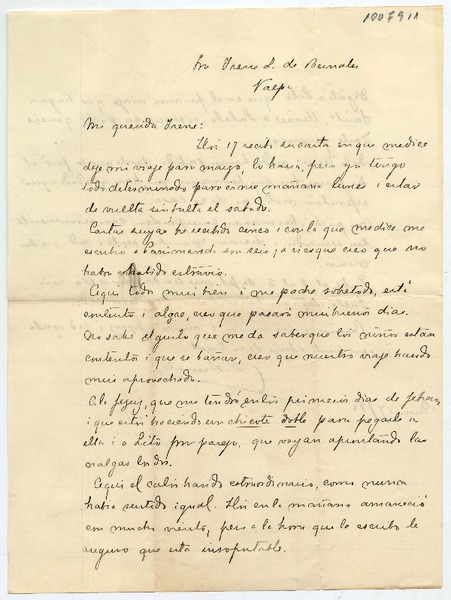 1007911
Sra Irene L. de Bernales
Valpo.
Mi querida Irene:
Hoi 17 recibí su carta en que me dice
deje mi viaje para mayo, lo haria, pero ya tengo
todo determinado para irme mañana lunes i estar
de vuelta sin falta el sabado.
Cartas suyas he recibido cinco i con la que me dice me
escribio a son seis; asi es que creo que no
habra habido estravio.
Aqui todo mui bien i mi padre sobretodo, está
contento i alegre, creo que pasará mui buenos dias.
No sabe el gusto que me da saber que los niños están
contentos i que se bañan, creo que nuestro viaje ha sido
mui aprovechado.
A la que me tendrá en los primeros dias de
i que estoi haciendo un chicote doble para pegarle a
ella i a Lito por parejo, que vayan aprontando las
nalgas
Aqui el calor ha sido estraordinario, como nunca
habia sentido igual. Hoi en la mañana amaneció
con mucho viento, pero a la hora que le escribo le
aseguro que está insoportable.